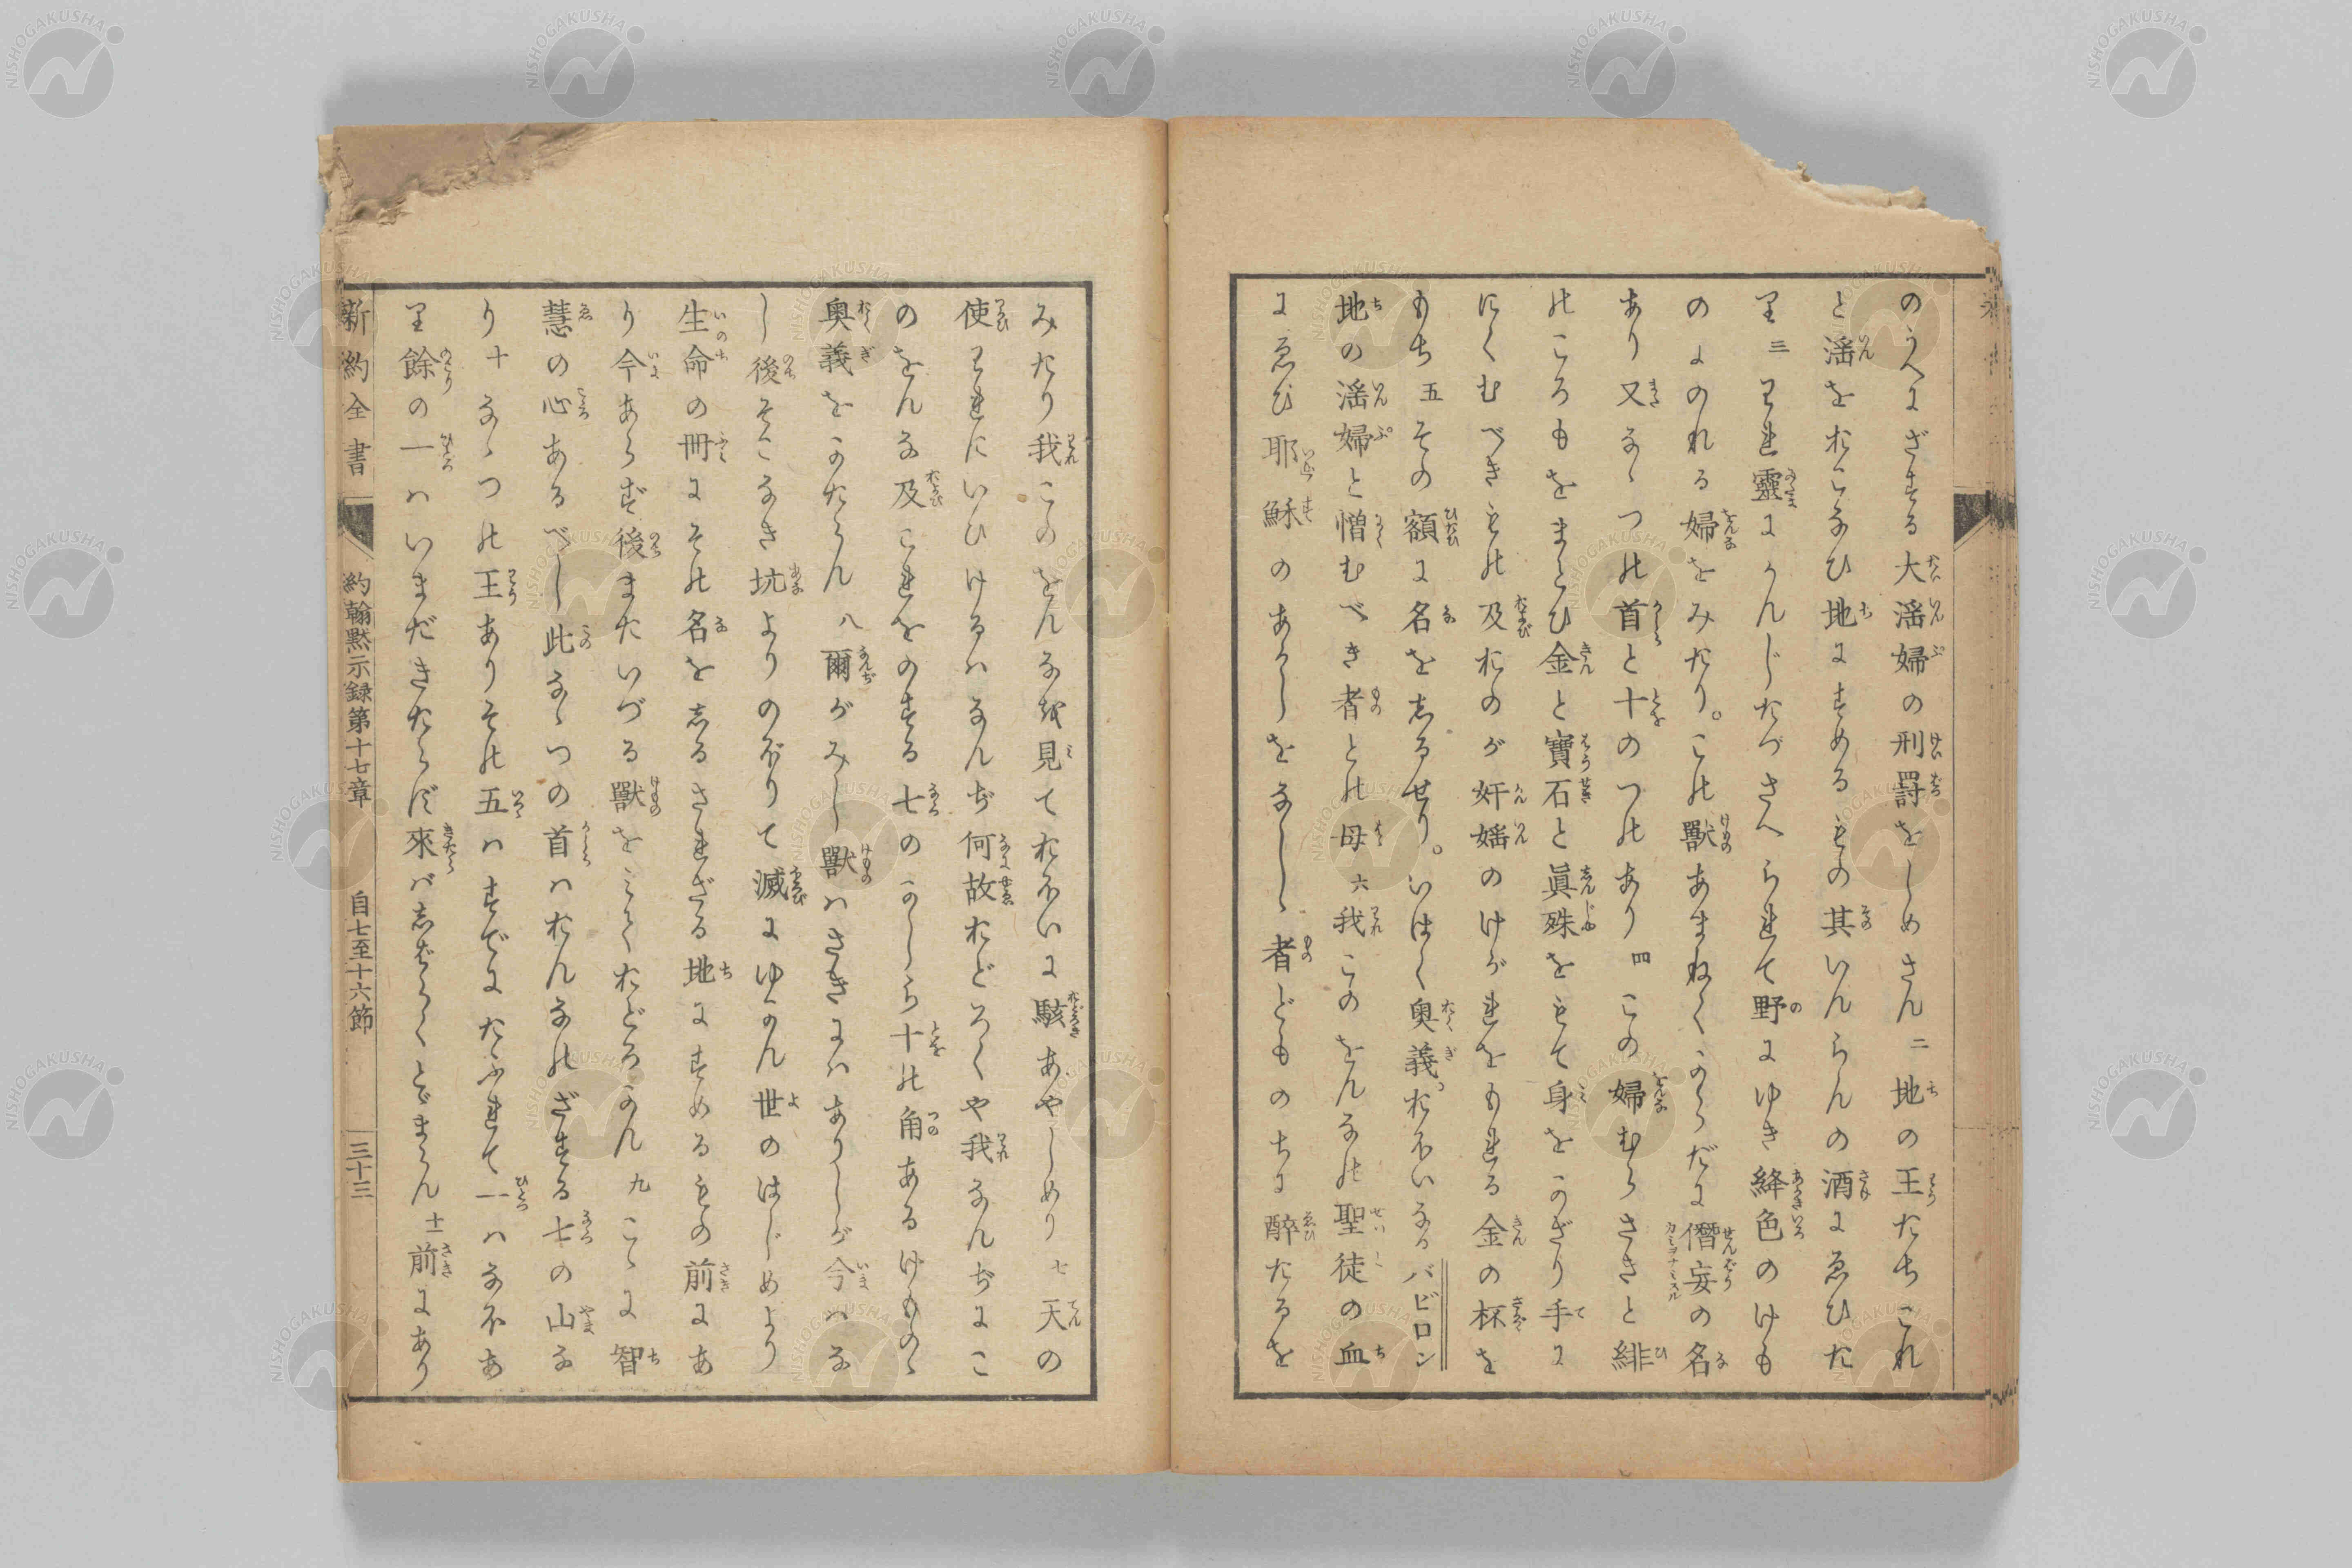 のうへにざする大淫婦の刑罰をしめさん二地の王たちこれ
と淫をおこなひ地にすめるもの其いんらんの酒にゑひた
り三われ靈にかんじたづさへられて野にゆき絳色のけも
のにのれる婦をみたり。この獸あまねくからだに僭妄の名
あり又なゝつの首と十のつのあり四この婦むらさきと緋
のころもをまとひ金と寶石と眞珠をもて身をかざり手に
にくむべきもの及おのが奸婬のけがれをもれる金の杯を
もち五その額に名をしるせり。いはく奥義。おほいなるバビロン
地の淫婦と憎むべき者との母六我このをんなの聖徒の血
にゑひ耶穌のあかしをなしゝ者どものちに醉たるを
みたり我このをんなを見ておほいに駭あやしめり七天の
使われにいひけるハなんぢ何故おどろくや我なんぢにこ
のをんな及これをのする七のかしら十の角あるけものゝ
奥義をかたらん八爾がみし獸ハさきにハありしが今ハな
し後そこなき坑よりのぼりて滅にゆかん世のはじめより
生命の冊にその名をしるされざる地にすめるもの前にあ
り今あらず後またいづる獸をみておどろかん九こゝに智
慧の心あるべし此なゝつの首ハおんなのざする七の山な
り十なゝつの王ありその五ハすでにたふれて一ハなほあ
り餘の一ハいまだきたらず來バしばらくとゞまらん十一前にあり
新約全書
約翰黙示録第十七章
自七至十六節
三十三
NISHOGAKUSHA